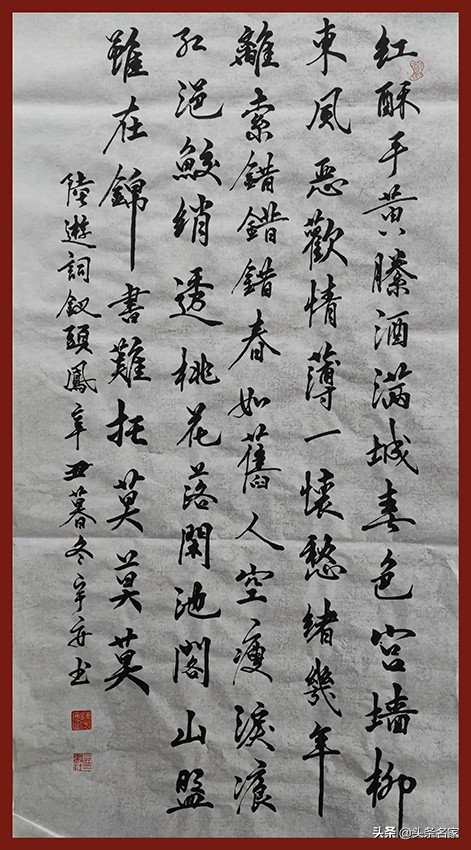 红酥手黄縢酒满城春色宫墙柳
東風恶歡情薄一懷愁緒幾年
離索錯錯錯春如舊人空瘦淚痕
红浥鮫绡透桃花落閑池閣山盟
雖在錦書難托莫莫莫
陸遊詞釵頭鳳辛丑暮冬宇安书
头条 @头条名家